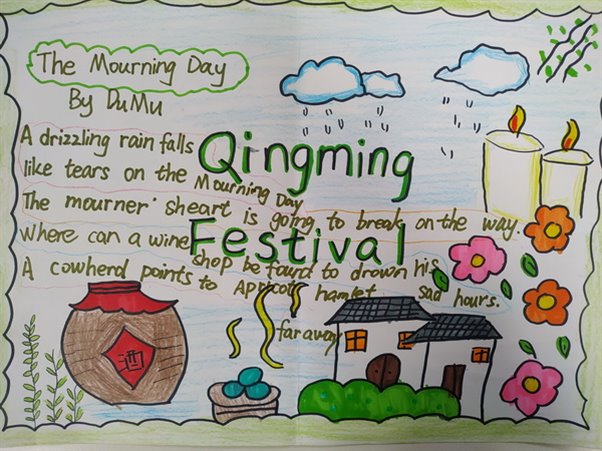 The Mourning Day
By DuMu
A drizzling rain falls
like tears on the Mourning Day
The mourner' sheart is going to break on the way.
Where can a wine shop be found to drown his sad hours.
A cowherd points to Apricot hamlet far away
Qingming
Festival
酒